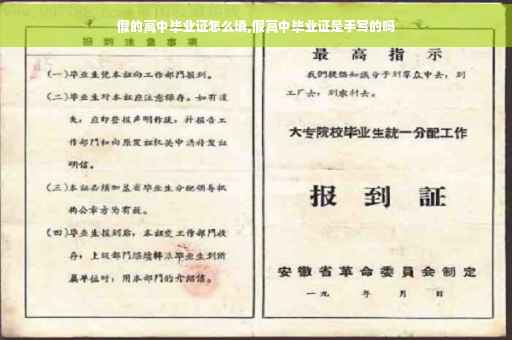 假的高中毕业证怎么填,假高中毕业证是手写的吗
报到注意事项
(一)毕业生凭本证向工作部门报到。
(二)毕业生对本证应注意保存。如有遗
失,应即登报声明作废,并报告工
作部门和向原发证机关申请补发证
明信。
(三)本证必须加盖省毕业生分配领导机
构公章方为有效。
(四)毕业生报到后,本证交工作部门收
存;上级部门继续转派毕业生到所
属单位时,用本部门的介绍信。
最高指示
我們提倡知識分子到羣众中去,到
工厂去,到农村去。
大专院校毕业生統一分配工作
报到証
安徽省革命委員会制定
一九 年 月 日